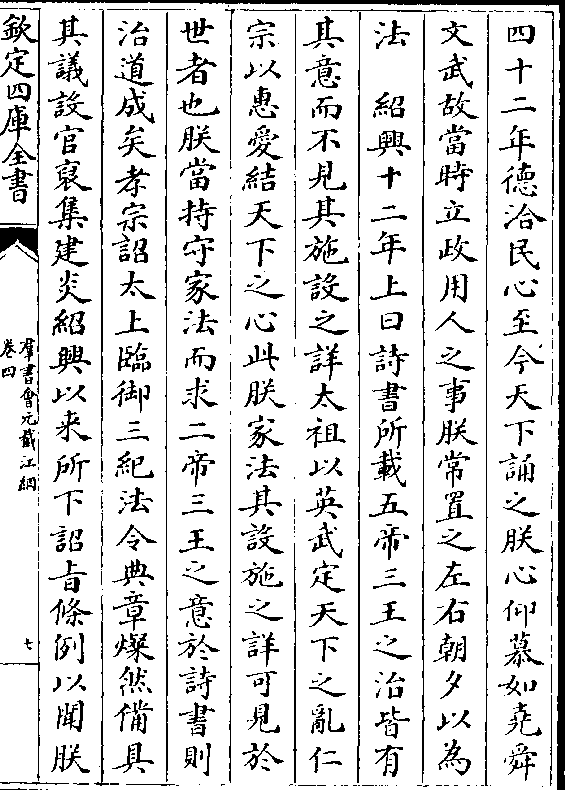 四十二年德洽民心至今天下誦之朕心仰慕如堯舜
文武故當時立政用人之事朕常置之左右朝夕以為
法　紹興十二年上曰詩書所載五帝三王之治皆有
其意而不見其施設之詳太祖以英武定天下之亂仁
宗以惠愛結天下之心此朕家法其設施之詳可見於
世者也朕當持守家法而求二帝三王之意於詩書則
治道成矣孝宗詔太上臨御三紀法令典章燦然備具
其議設官裒集建炎紹興以来所下詔旨條例以聞朕
欽定四庫全書
羣書會元截江綱
卷四
七